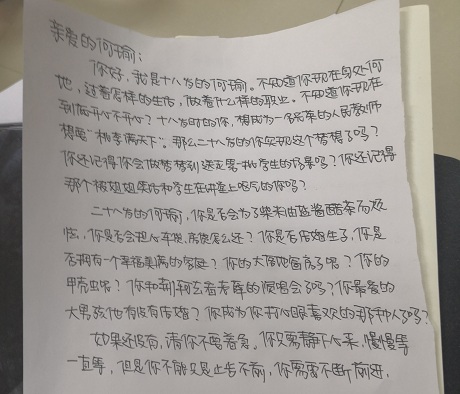 亲爱的何瑜：
你好，我是十八岁的何瑜。不知道你现在身处何
地，过着怎样的生活，做着什么样的职业。不知道你现在
到底开心不开心？十八岁时的你，想成为一名光荣的人民教师
想要“桃李满天下”。那么二十八岁的你实现这个梦想了吗？
你还记得你会做梦梦到送走第一批学生的场景吗？你还记得
那个被姐姐柔选和学生在讲台上吼气的你吗？
二十八岁的何瑜，你是否会为了柴米油盐酱醋茶而烦
恼，你是否会担心车贷、房贷怎么还？你是否结婚生子，你是
否拥有一个幸福美满的家庭？你的大保险留高了吗？你的
甲壳虫呢？你和荆荆去看老薛的演唱会了吗？你最爱的
大男孩他有没有结婚？你成为你打心眼喜欢的那种人了吗？
如果还没有，请你不要着急。你只需静下心来，慢慢等
一直等，但是你不能只是止步不前，你需要不断前进，